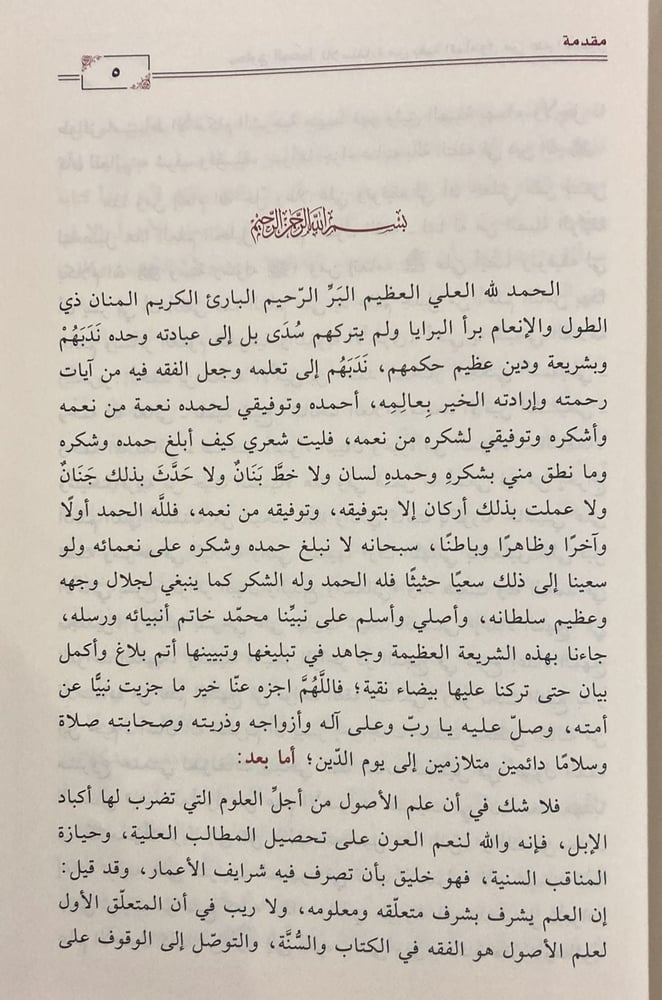 مقدمة
٥
بسم الله الرحمن الرحيم
الحمد لله العلي العظيم البَرِّ الرّحيم البارئ الكريم المنان ذي
الطول والإنعام برأ البرايا ولم يتركهم سُدَى بل إلى عبادته وحده نَدَبَهُمْ
وبشريعة ودين عظيم حكمهم، نَدَبَهُم إلى تعلمه وجعل الفقه فيه من آيات
رحمته وإرادته الخير بِعالِمِه، أحمده وتوفيقي لحمده نعمة من نعمه
وأشكره وتوفيقي لشكره من نعمه، فليت شعري كيف أبلغ حمده وشكره
وما نطق مني بشكرهِ وحمدهِ لسان ولا خطَّ بَنَانٌ ولا حَدَّثَ بذلك جَنَانٌ
ولا عملت بذلك أركان إلا بتوفيقه، وتوفيقه من نعمه، فللَّه الحمد أولًا
وآخرًا وظاهرًا وباطنًا، سبحانه لا نبلغ حمده وشكره على نعمائه ولو
سعينا إلى ذلك سعيًا حثيثًا فله الحمد وله الشكر كما ينبغي لجلال وجهه
وعظيم سلطانه، وأصلي وأسلم على نبيِّنا محمّد خاتم أنبيائه ورسله،
جاءنا بهذه الشريعة العظيمة وجاهد في تبليغها وتبيينها أتم بلاغ وأكمل
بيان حتى تركنا عليها بيضاء نقية؛ فاللَّهُمَّ اجزه عنّا خير ما جزيت نبيًّا عن
أمته، وصلّ عليه يا ربّ وعلى آله وأزواجه وذريته وصحابته صلاة
وسلامًا دائمين متلازمين إلى يوم الدّين؛ أما بعد:
فلا شك في أن علم الأصول من أجلِّ العلوم التي تضرب لها أكباد
الإبل، فإنه والله لنعم العون على تحصيل المطالب العلية، وحيازة
المناقب السنية، فهو خليق بأن تصرف فيه شرايف الأعمار، وقد قيل:
إن العلم يشرف بشرف متعلّقه ومعلومه، ولا ريب في أن المتعلّق الأول
لعلم الأصول هو الفقه في الكتاب والسُّنَّة، والتوصّل إلى الوقوف على